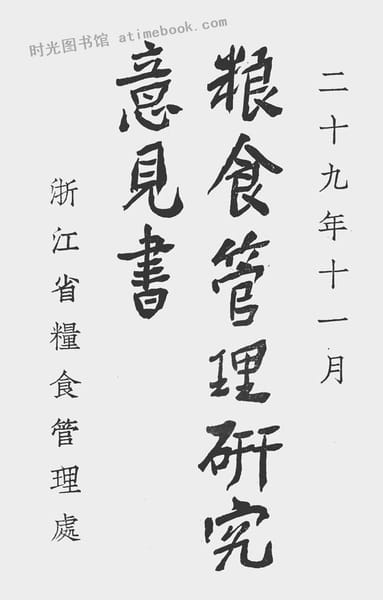 时光图书馆 atimebook.com
二十九年十一月
粮食管理研究
意見書
浙江省糧食管理處